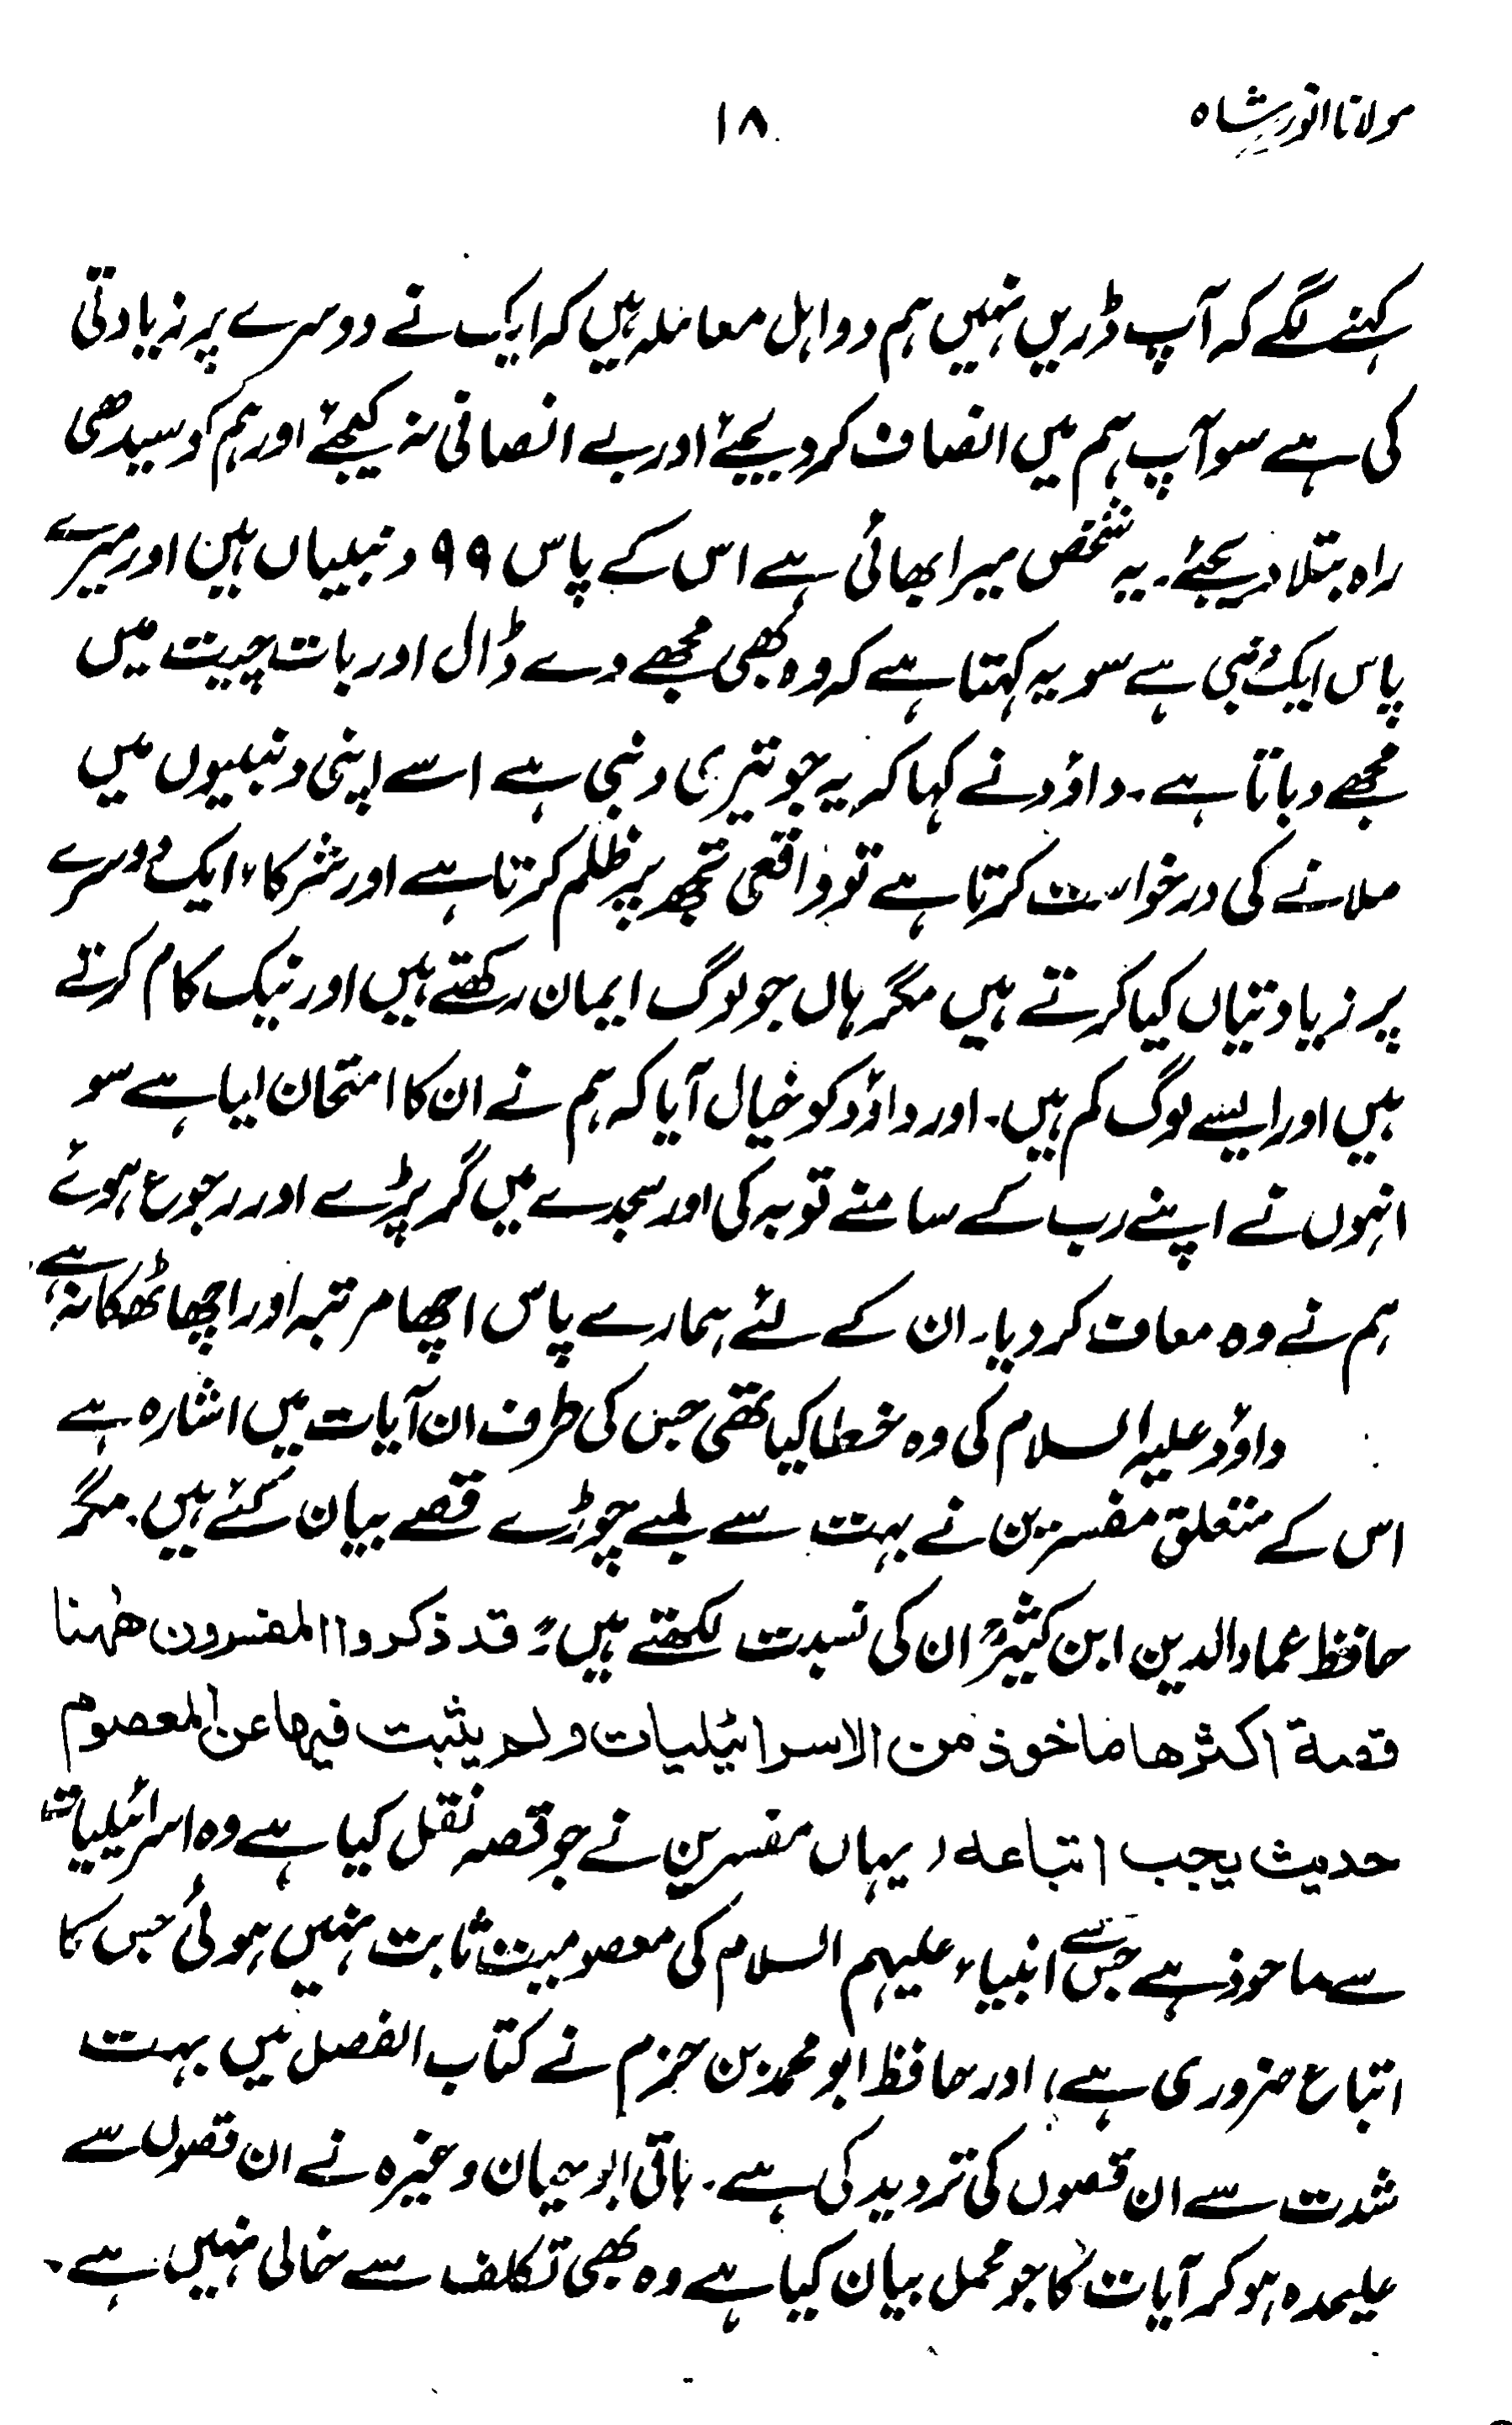 مولانا انور شاہ
۱۸
کہنے لگے کہ آپ ڈریں نہیں ہم دو اہل معاملہ ہیں کہ ایک نے دوسرے پر زیادتی
کی ہے سو آپ ہم میں انصاف کر دیجئے اور بے انصافی نہ کیجئے اور ہم کو سیدھی
راہ بتلا دیجئے۔ یہ شخص میرا بھائی ہے اس کے پاس ۹۹ دنبیاں ہین اور میرے
پاس ایک دنبی ہے سو یہ کہتا ہے کہ وہ بھی مجھے دے ڈال اور بات چیت میں
مجھے دباتا ہے۔ داؤد نے کہا کہ یہ جو تیری دنبی ہے اسے اپنی دنبیوں میں
ملانے کی درخواست کرتا ہے تو واقعی تجھ پر ظلم کرتا ہے اور شرکاء ایک دوسرے
پر زیادتیاں کیا کرتے ہیں مگر ہاں جو لوگ ایمان رکھتے ہیں اور نیک کام کرتے
ہیں اور ایسے لوگ کم ہیں۔ اور داؤد کو خیال آیا کہ ہم نے ان کا امتحان لیا ہے سو
انہوں نے اپنے رب کے سامنے توبہ کی اور سجدے میں گر پڑے اور رجوع ہوئے
ہم نے وہ معاف کر دیا۔ ان کے لئے ہمارے پاس اچھا مرتبہ اور اچھا ٹھکانہ ہے
داؤد علیہ السلام کی وہ خطا کیا تھی جس کی طرف ان آیات میں اشارہ ہے
اس کے متعلق مفسرین نے بہت سے لمبے چوڑے قصے بیان کئے ہیں۔ مگر
حافظ عماد الدین ابن کثیرؒ ان کی نسبت لکھتے ہیں؛ قد ذکروا المفسرون ھٰہنا
قصة اکثرھا ماخوذ من الاسرائیلیات ولم یثبت فیہا عن المعصوم
حدیث یجب اتباعہ، یہاں مفسرین نے جو قصہ نقل کیا ہے وہ اسرائیلیات
سے ماخوذ ہے جس سے انبیاء علیہم السلام کی معصومیت ثابت نہیں ہوئی جس کا
اتباع ضروری ہے، اور حافظ ابو محمد بن حزم نے کتاب الفصل میں بہت
شدت سے ان قصوں کی تردید کی ہے۔ باقی ابو حیان وغیرہ نے ان قصوں سے
علیحدہ ہو کر آیات کا جو محمل بیان کیا ہے وہ بھی تکلف سے خالی نہیں ہے۔